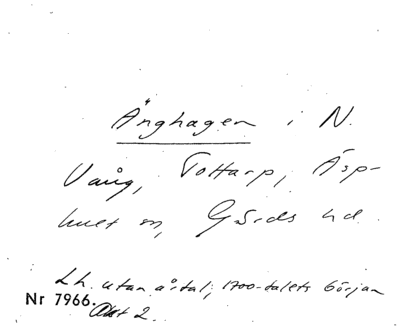 Änghagen i N.
Vång, Tottarp, Äsp-
huet sn, Gärds hd.
Lh. utan årtal; 1700-talets början
Nr 7966. Akt 2.